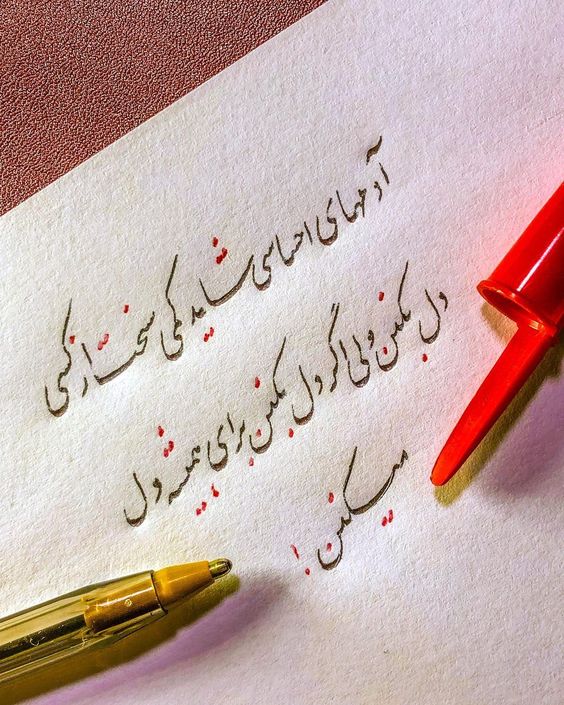 آدمهای احساسی شاید کمی سخت از کسی
دل بکنن ولی اگر دل بکنن برای همیشه دل
میکنن!